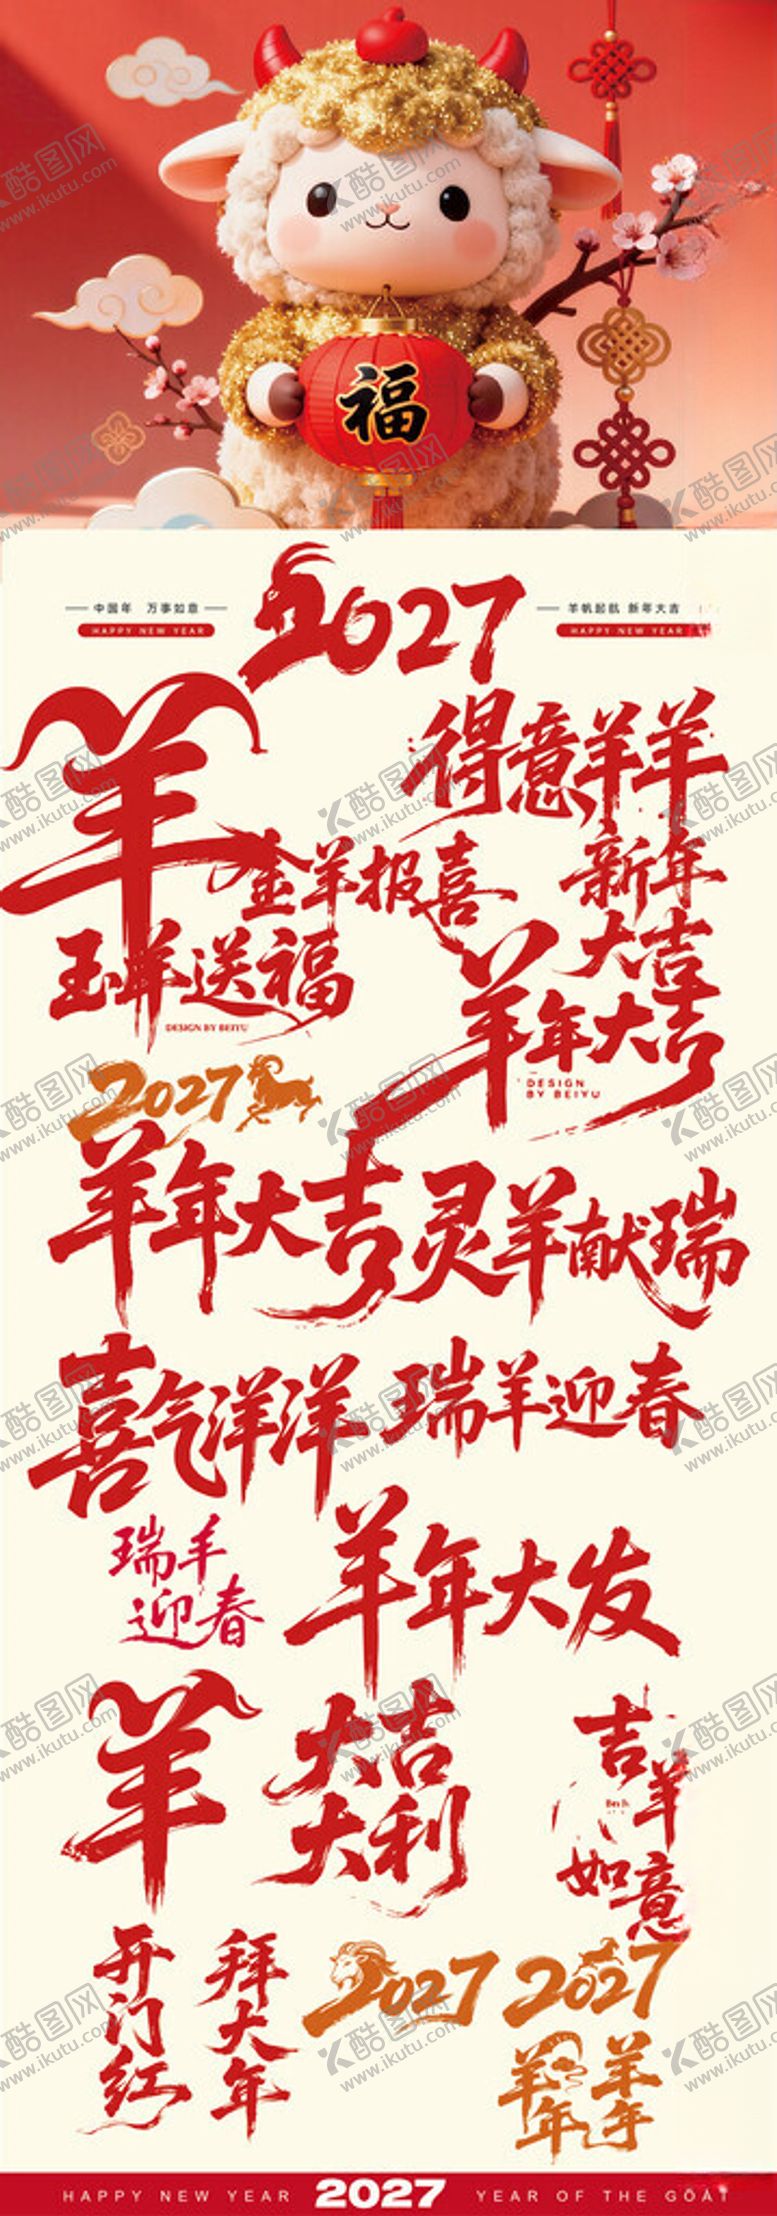 福
2027
中国年 万事如意
HAPPY NEW YEAR
羊帆起航 新年大吉
HAPPY NEW YEAR
羊
得意羊羊
金羊报喜
新年
大吉
玉羊送福
DESIGN BY BEIYU
羊年大吉
DESIGN
BY BEIYU
2027
羊年大吉
灵羊献瑞
喜气洋洋
瑞羊迎春
瑞羊
迎春
羊年大发
羊
大吉
大利
吉羊
如意
开门红
拜大年
2027
2027
羊年
羊年
HAPPY NEW YEAR 2027 YEAR OF THE GOAT
酷图网
www.ikutu.com